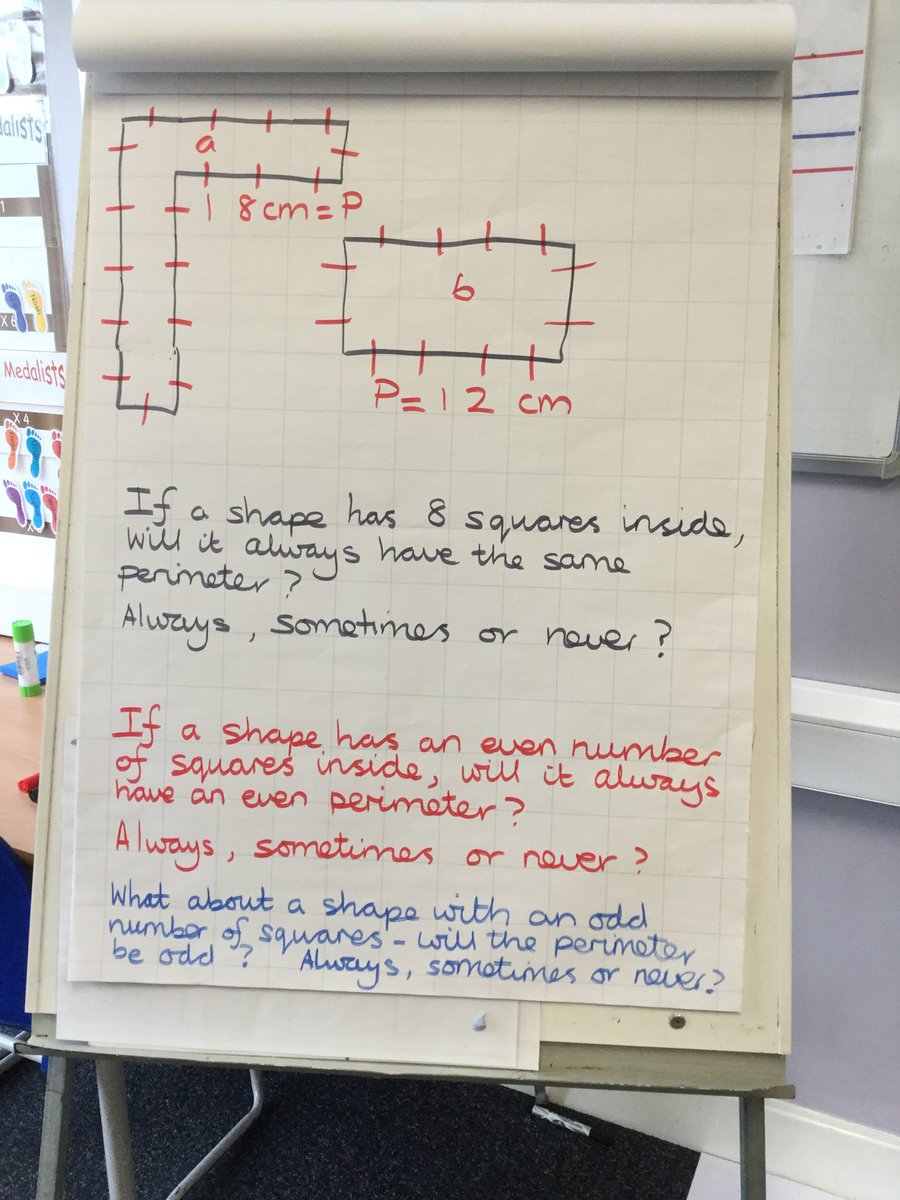 dalists
1
X 6
Medalists
X 4
a
18cm=P
b
P=12 cm
If a shape has 8 squares inside,
will it always have the same
perimeter?
Always, sometimes or never?
If a shape has an even number
of squares inside, will it always
have an even perimeter?
Always, sometimes or never?
What about a shape with an odd
number of squares - will the perimeter
be odd? Always, sometimes or never?